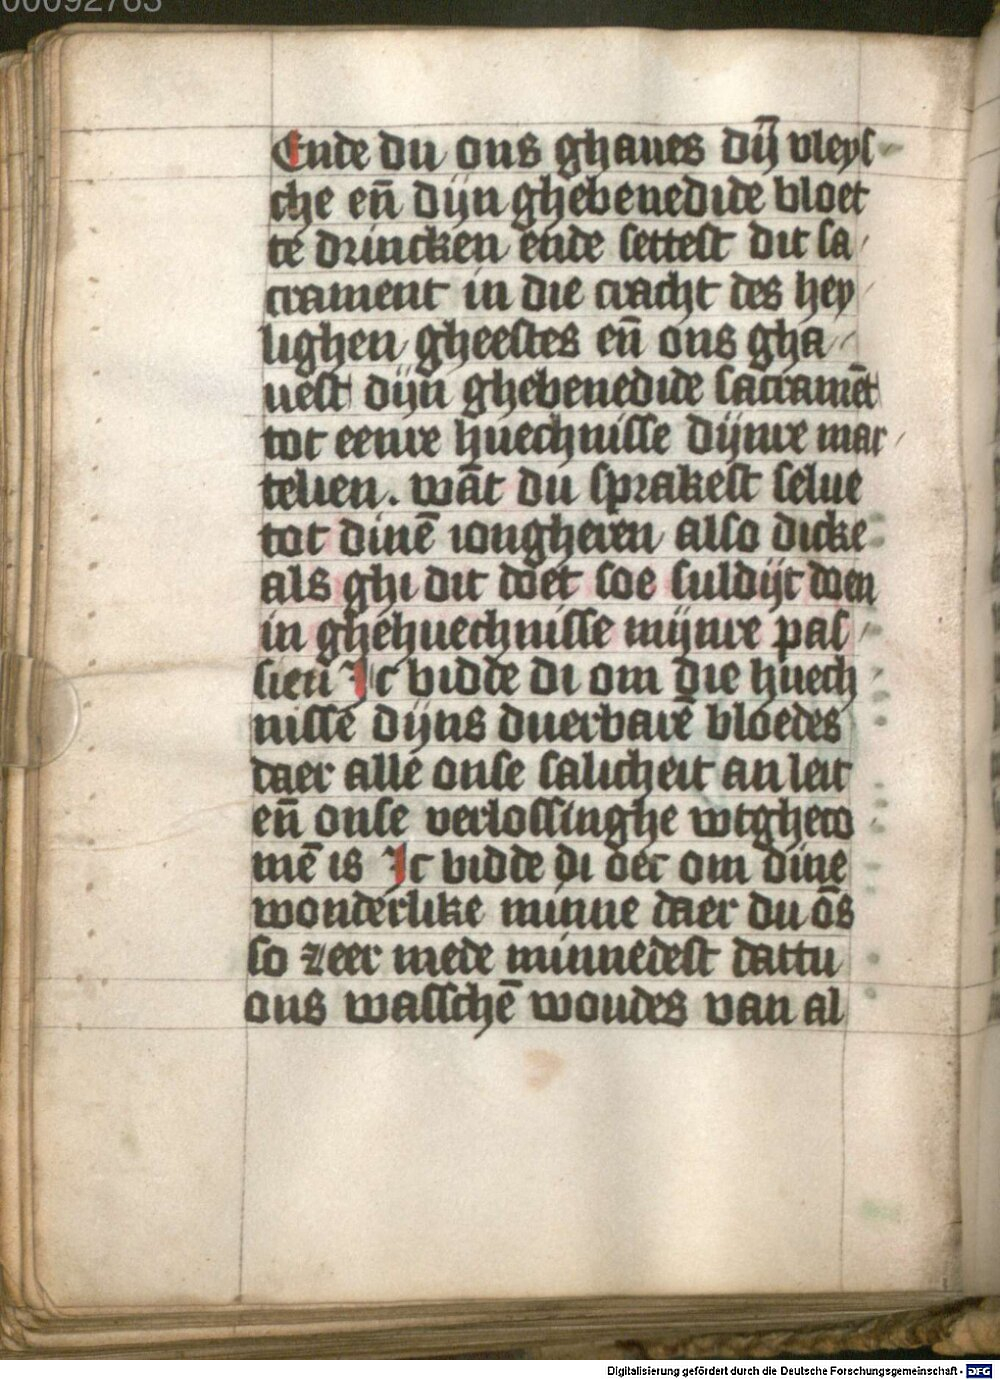 00092763
Ende du ons ghaues dij̄ vleys
che en̄ dijn ghebenedide bloet
te drincken ende settest dit sa
crament in die cracht des hey
lighen gheestes en̄ ons gha
uest dijn ghebenedide sacramēt
tot eenre huechnisse dijnre mar
telien. wāt du sprakest selue
tot dinē iongheren also dicke
als ghi dit doet soe suldijt doen
in ghehuechnisse mijnre pas
sien Ic bidde di om die huech
nisse dijns duerbarē bloedes
daer alle onse salicheit an leit
en̄ onse verlossinghe wtgheco
mē is Ic bidde di oec om dine
wonderlike minne daer du ōs
so zeer mede minnedest dattu
ons wasschē woudes van al
Digitalisierung gefördert durch die Deutsche Forschungsgemeinschaft - DFG